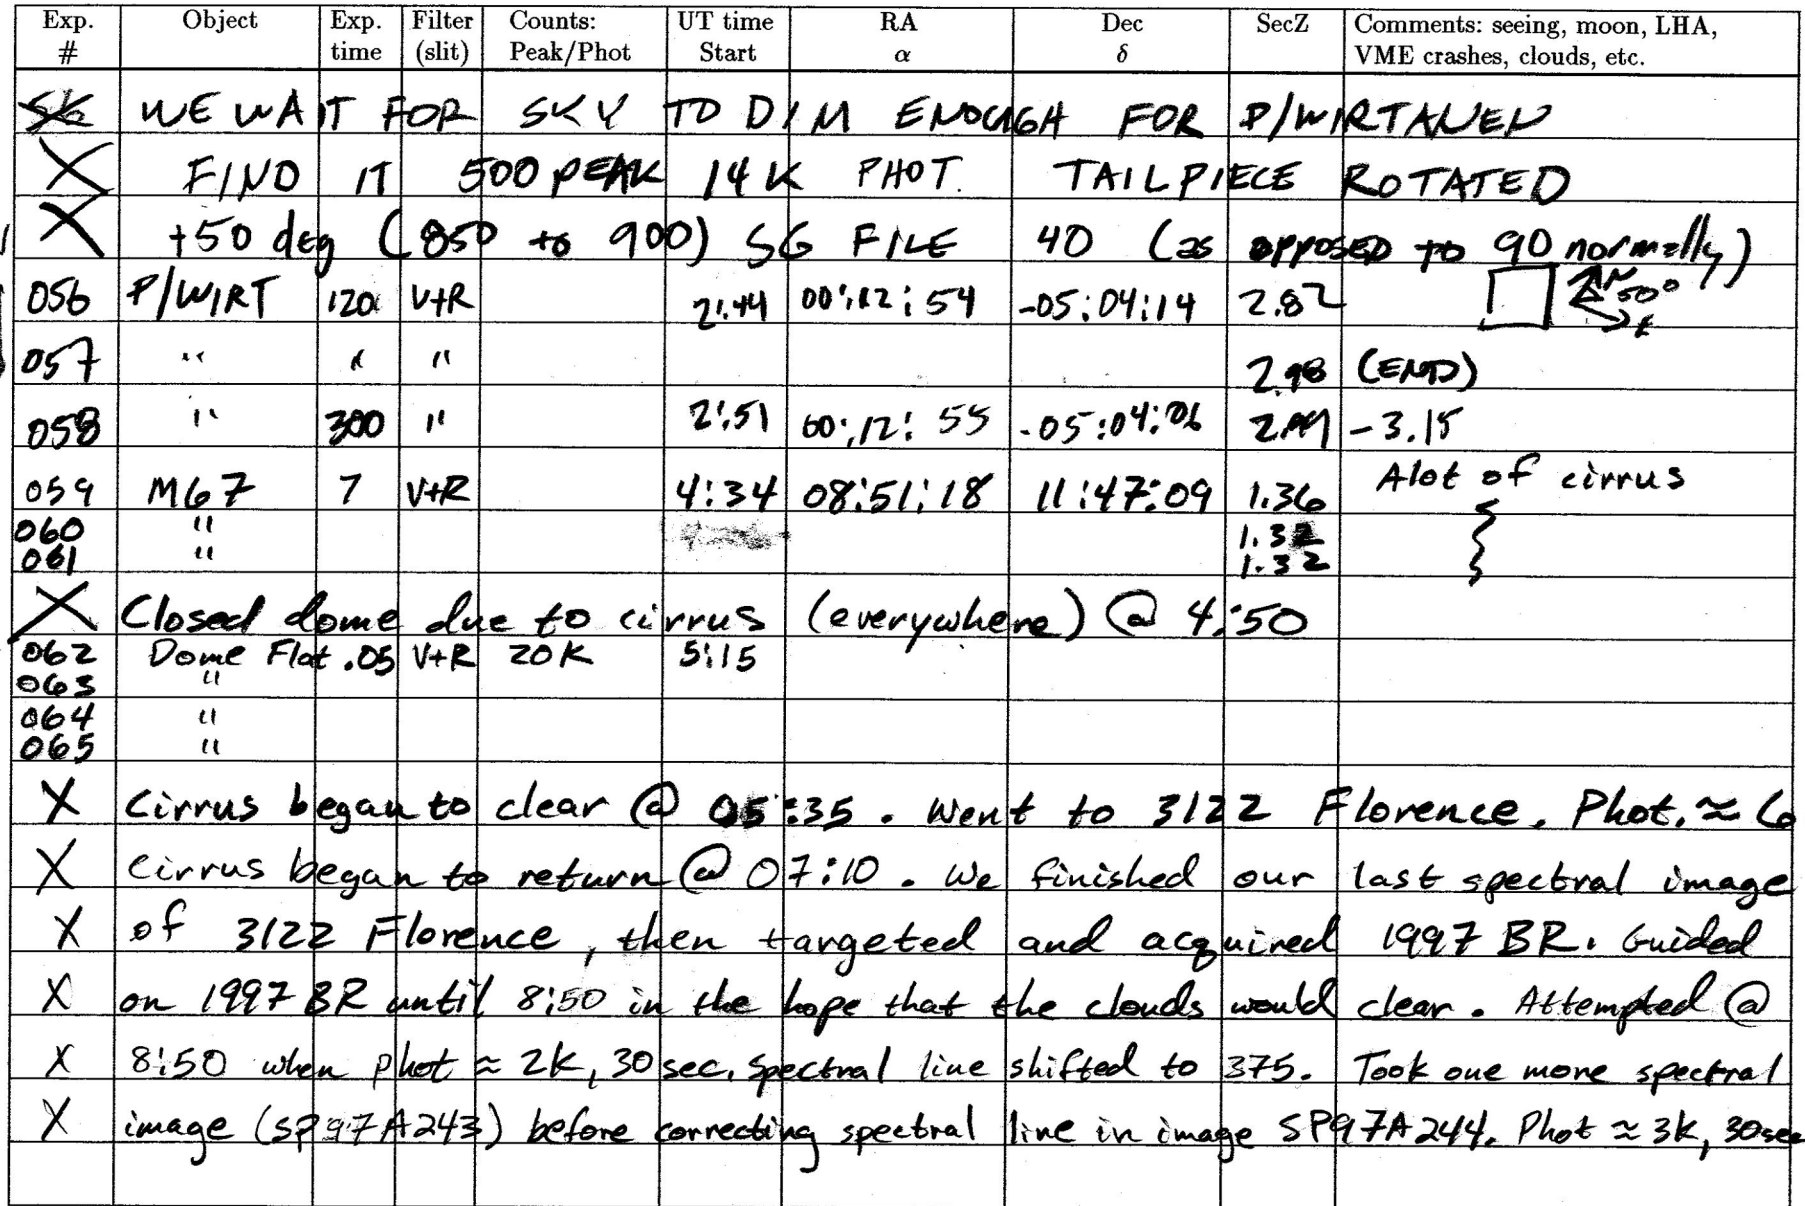 Exp. # Object Exp. time Filter (slit) Counts: Peak/Phot UT time Start RA α Dec δ SecZ Comments: seeing, moon, LHA, VME crashes, clouds, etc.
WE WAIT FOR SKY TO DIM ENOUGH FOR P/WIRTANEN
X FIND IT 500 PEAK 14K PHOT. TAILPIECE ROTATED
X +50 deg (850 to 900) SG FILE 40 (as opposed to 90 normally)
056 P/WIRT 120 V+R 2:44 00:12:54 -05:04:14 2.82 N 50° E
057 " " " 2.98 (END)
058 " 300 " 2:51 00:12:55 -05:04:06 -3.15
059 M67 7 V+R 4:34 08:51:18 11:47:09 1.36 Alot of cirrus
060 " 1.32
061 " 1.32
X Closed dome due to cirrus (everywhere) @ 4:50
062 Dome Flat .05 V+R 20K 5:15
063 "
064 "
065 "
X Cirrus began to clear @ 05:35. Went to 3122 Florence. Phot. ≈ 6
X Cirrus began to return @ 07:10. We finished our last spectral image
X of 3122 Florence, then targeted and acquired 1997 BR. Guided
X on 1997 BR until 8:50 in the hope that the clouds would clear. Attempted @
X 8:50 when phot ≈ 2K, 30 sec. Spectral line shifted to 375. Took one more spectral
X image (SP97A243) before correcting spectral line in image SP97A244. Phot ≈ 3K, 30sec